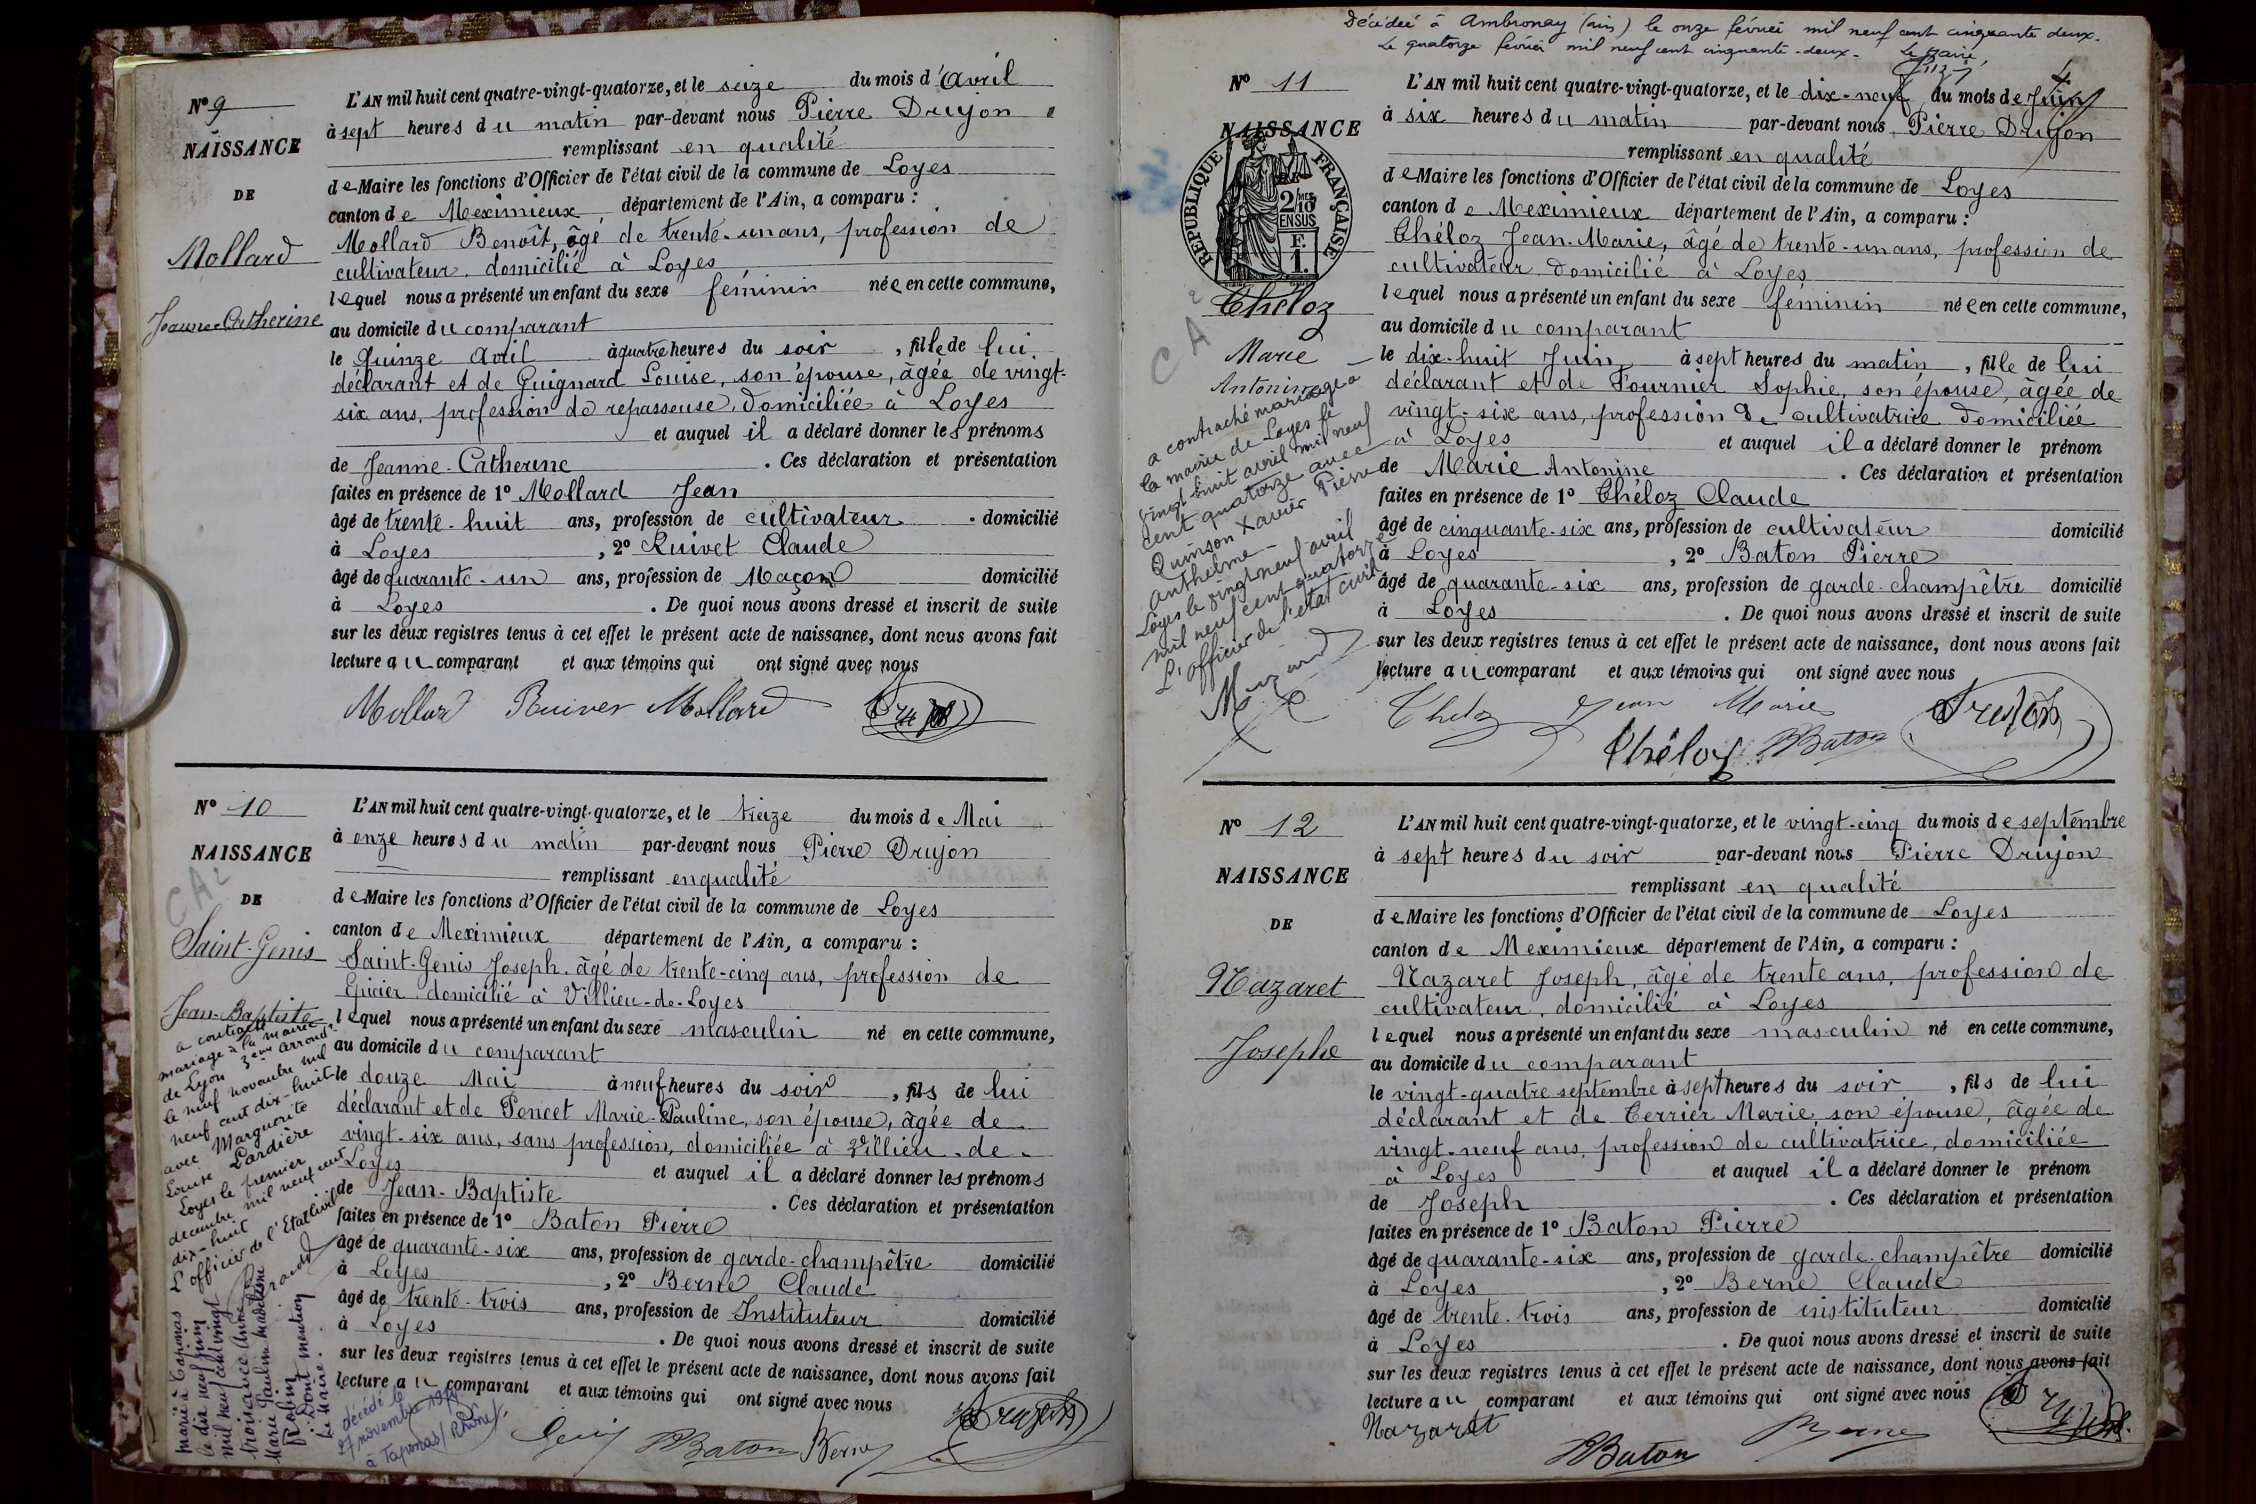 Nº 9
NAISSANCE
DE
Mollard
Jeanne Catherine
L'AN mil huit cent quatre-vingt-quatorze, et le seize du mois d'Avril
à sept heures du matin par-devant nous Pierre Drujon
remplissant en qualité
de Maire les fonctions d'Officier de l'état civil de la commune de Loyes
canton de Meximieux, département de l'Ain, a comparu :
Mollard Benoît, âgé de trente-un ans, profession de
cultivateur, domicilié à Loyes
lequel nous a présenté un enfant du sexe féminin née en cette commune,
au domicile du comparant
le Quinze Avril à quatre heures du soir, fille de lui
déclarant et de Guignard Louise, son épouse, âgée de vingt-
six ans, profession de repasseuse, domiciliée à Loyes
et auquel il a déclaré donner les prénoms
de Jeanne-Catherine. Ces déclaration et présentation
faites en présence de 1º Mollard Jean
âgé de trente-huit ans, profession de cultivateur. domicilié
à Loyes, 2º Ruivet Claude
âgé de quarante-un ans, profession de Maçon domicilié
à Loyes. De quoi nous avons dressé et inscrit de suite
sur les deux registres tenus à cet effet le présent acte de naissance, dont nous avons fait
lecture au comparant et aux témoins qui ont signé avec nous
Mollard Ruivet Mollard Drujon
Nº 10
NAISSANCE
DE
CA2
Saint-Genis
Jean-Baptiste
a contracté
mariage à la mairie
de Lyon 3ème arrondt
le neuf novembre mil
neuf cent dix-huit
avec Marguerite
Louise Lardière
Loyes le premier
decembre mil neuf cent
dix-huit
L'officier de l'Etat civil
marié à Taponas
le dix neuf juin
mil neuf cent vingt
trois avec Anne
Marie Pauline Madeleine
Robin
Dont mention
Le Maire.
décédé le
27 novembre 19
à Taponas (Rhône).
L'AN mil huit cent quatre-vingt-quatorze, et le treize du mois de Mai
à onze heures du matin par-devant nous Pierre Drujon
remplissant en qualité
de Maire les fonctions d'Officier de l'état civil de la commune de Loyes
canton de Meximieux département de l'Ain, a comparu :
Saint-Genis Joseph, âgé de trente-cinq ans, profession de
Epicier, domicilié à Villieu-de-Loyes
lequel nous a présenté un enfant du sexe masculin né en cette commune,
au domicile du comparant
le douze Mai à neuf heures du soir, fils de lui
déclarant et de Poncet Marie-Pauline, son épouse, âgée de
vingt-six ans, sans profession, domiciliée à Villieu-de-
Loyes et auquel il a déclaré donner les prénoms
de Jean-Baptiste. Ces déclaration et présentation
faites en présence de 1º Baton Pierre
âgé de quarante-six ans, profession de garde-champêtre domicilié
à Loyes, 2º Berne Claude
âgé de trente-trois ans, profession de Instituteur domicilié
à Loyes. De quoi nous avons dressé et inscrit de suite
sur les deux registres tenus à cet effet le présent acte de naissance, dont nous avons fait
lecture au comparant et aux témoins qui ont signé avec nous
PBaton Berne Drujon
Décédée à Ambronay (ain) le onze février mil neuf cent cinquante deux.
Le quatorze février mil neuf cent cinquante-deux. Le Maire,
Nº 11
NAISSANCE
RÉPUBLIQUE FRANÇAISE
2/10 MES EN SUS
F. 1.
CA2
Chéloz
Marie
Antonine
a contracté mariage à
la mairie de Loyes le
vingt-huit avril mil neuf
cent quatorze avec
Quinson Xavier Pierre
Anthelme
Loyes le vingt neuf avril
mil neuf cent quatorze
L'officier de l'état civil
L'AN mil huit cent quatre-vingt-quatorze, et le dix-neuf du mois de Juin
à six heures du matin par-devant nous Pierre Drujon
remplissant en qualité
de Maire les fonctions d'Officier de l'état civil de la commune de Loyes
canton de Meximieux département de l'Ain, a comparu :
Chéloz Jean-Marie, âgé de trente-un ans, profession de
cultivateur domicilié à Loyes
lequel nous a présenté un enfant du sexe féminin née en cette commune,
au domicile du comparant
le dix-huit Juin à sept heures du matin, fille de lui
déclarant et de Fournier Sophie, son épouse, âgée de
vingt-six ans, profession de cultivatrice domiciliée
à Loyes et auquel il a déclaré donner le prénom
de Marie Antonine. Ces déclaration et présentation
faites en présence de 1º Chéloz Claude
âgé de cinquante-six ans, profession de cultivateur domicilié
à Loyes, 2º Baton Pierre
âgé de quarante-six ans, profession de garde-champêtre domicilié
à Loyes. De quoi nous avons dressé et inscrit de suite
sur les deux registres tenus à cet effet le présent acte de naissance, dont nous avons fait
lecture au comparant et aux témoins qui ont signé avec nous
Cheloz Jean Marie Drujon
Chéloz PBaton
Nº 12
NAISSANCE
DE
Nazaret
Joseph
L'AN mil huit cent quatre-vingt-quatorze, et le vingt-cinq du mois de septembre
à sept heures du soir par-devant nous Pierre Drujon
remplissant en qualité
de Maire les fonctions d'Officier de l'état civil de la commune de Loyes
canton de Meximieux département de l'Ain, a comparu :
Nazaret Joseph, âgé de trente ans, profession de
cultivateur, domicilié à Loyes
lequel nous a présenté un enfant du sexe masculin né en cette commune,
au domicile du comparant
le vingt-quatre septembre à sept heures du soir, fils de lui
déclarant et de Terrier Marie, son épouse, âgée de
vingt-neuf ans, profession de cultivatrice, domiciliée
à Loyes et auquel il a déclaré donner le prénom
de Joseph. Ces déclaration et présentation
faites en présence de 1º Baton Pierre
âgé de quarante-six ans, profession de garde-champêtre domicilié
à Loyes, 2º Berne Claude
âgé de trente-trois ans, profession de instituteur domicilié
à Loyes. De quoi nous avons dressé et inscrit de suite
sur les deux registres tenus à cet effet le présent acte de naissance, dont nous avons fait
lecture au comparant et aux témoins qui ont signé avec nous
Nazaret PBaton Berne Drujon